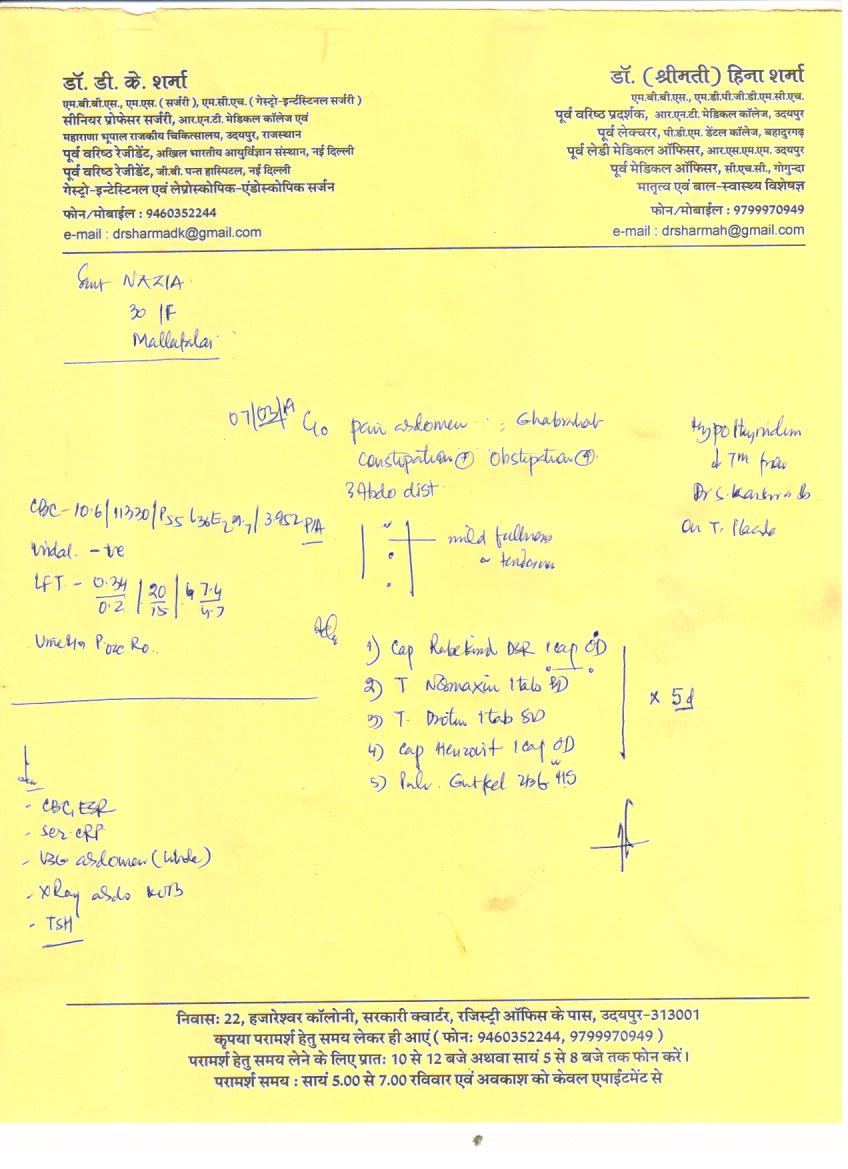 डॉ. डी. के. शर्मा
एम.बी.बी.एस., एम.एस. ( सर्जरी ), एम.सी.एच. ( गेस्ट्रो-इन्टेंस्टिनल सर्जरी )
सीनियर प्रोफेसर सर्जरी, आर.एन.टी. मेडिकल कॉलेज एवं
महाराणा भूपाल राजकीय चिकित्सालय, उदयपुर, राजस्थान
पूर्व वरिष्ठ रेजीडेंट, अखिल भारतीय आयुर्विज्ञान संस्थान, नई दिल्ली
पूर्व वरिष्ठ रेजीडेंट, जी.बी. पन्त हास्पिटल, नई दिल्ली
गेस्ट्रो-इन्टेस्टिनल एवं लेप्रोस्कोपिक-एंडोस्कोपिक सर्जन
फोन/मोबाईल : 9460352244
e-mail : drsharmadk@gmail.com
डॉ. (श्रीमती) हिना शर्मा
एम.बी.बी.एस., एम.डी.पी.जी.डी.एम.सी.एच.
पूर्व वरिष्ठ प्रदर्शक, आर.एन.टी. मेडिकल कॉलेज, उदयपुर
पूर्व लेक्चरर, पी.डी.एम. डेंटल कॉलेज, बहादुरगढ़
पूर्व लेडी मेडिकल ऑफिसर, आर.एस.एम.एम. उदयपुर
पूर्व मेडिकल ऑफिसर, सी.एच.सी., गोगुन्दा
मातृत्व एवं बाल-स्वास्थ्य विशेषज्ञ
फोन/मोबाईल : 9799970949
e-mail : drsharmah@gmail.com
Smt NAZIA
30 /F
07/03/19 C/o pain abdomen : Ghabrahat
Constipation + Obstipation +
? Abdo dist
Hypothyroidism
Dr S.
On T.
CBC - 10.6 / 11330 / P55 L36 E2
P/A
Widal - -ve
LFT - 0.34/0.2 | 20/15 | 7.4/4.7
mild fullness
tenderness
1) Cap Rabekind DSR 1 cap OD
2) T 1 tab BD
3) T. Drotin 1 tab BD
4) Cap 1 cap OD
5) Pulv. Gutfeel HS
x 5d
- CBC, ESR
- Ser. CRP
- USG abdomen (Whole)
- X Ray abdo KUB
- TSH
निवासः 22, हजारेश्वर कॉलोनी, सरकारी क्वार्टर, रजिस्ट्री ऑफिस के पास, उदयपुर-313001
कृपया परामर्श हेतु समय लेकर ही आएं ( फोनः 9460352244, 9799970949 )
परामर्श हेतु समय लेने के लिए प्रातः 10 से 12 बजे अथवा सायं 5 से 8 बजे तक फोन करें।
परामर्श समय : सायं 5.00 से 7.00 रविवार एवं अवकाश को केवल एपाईंटमेंट से